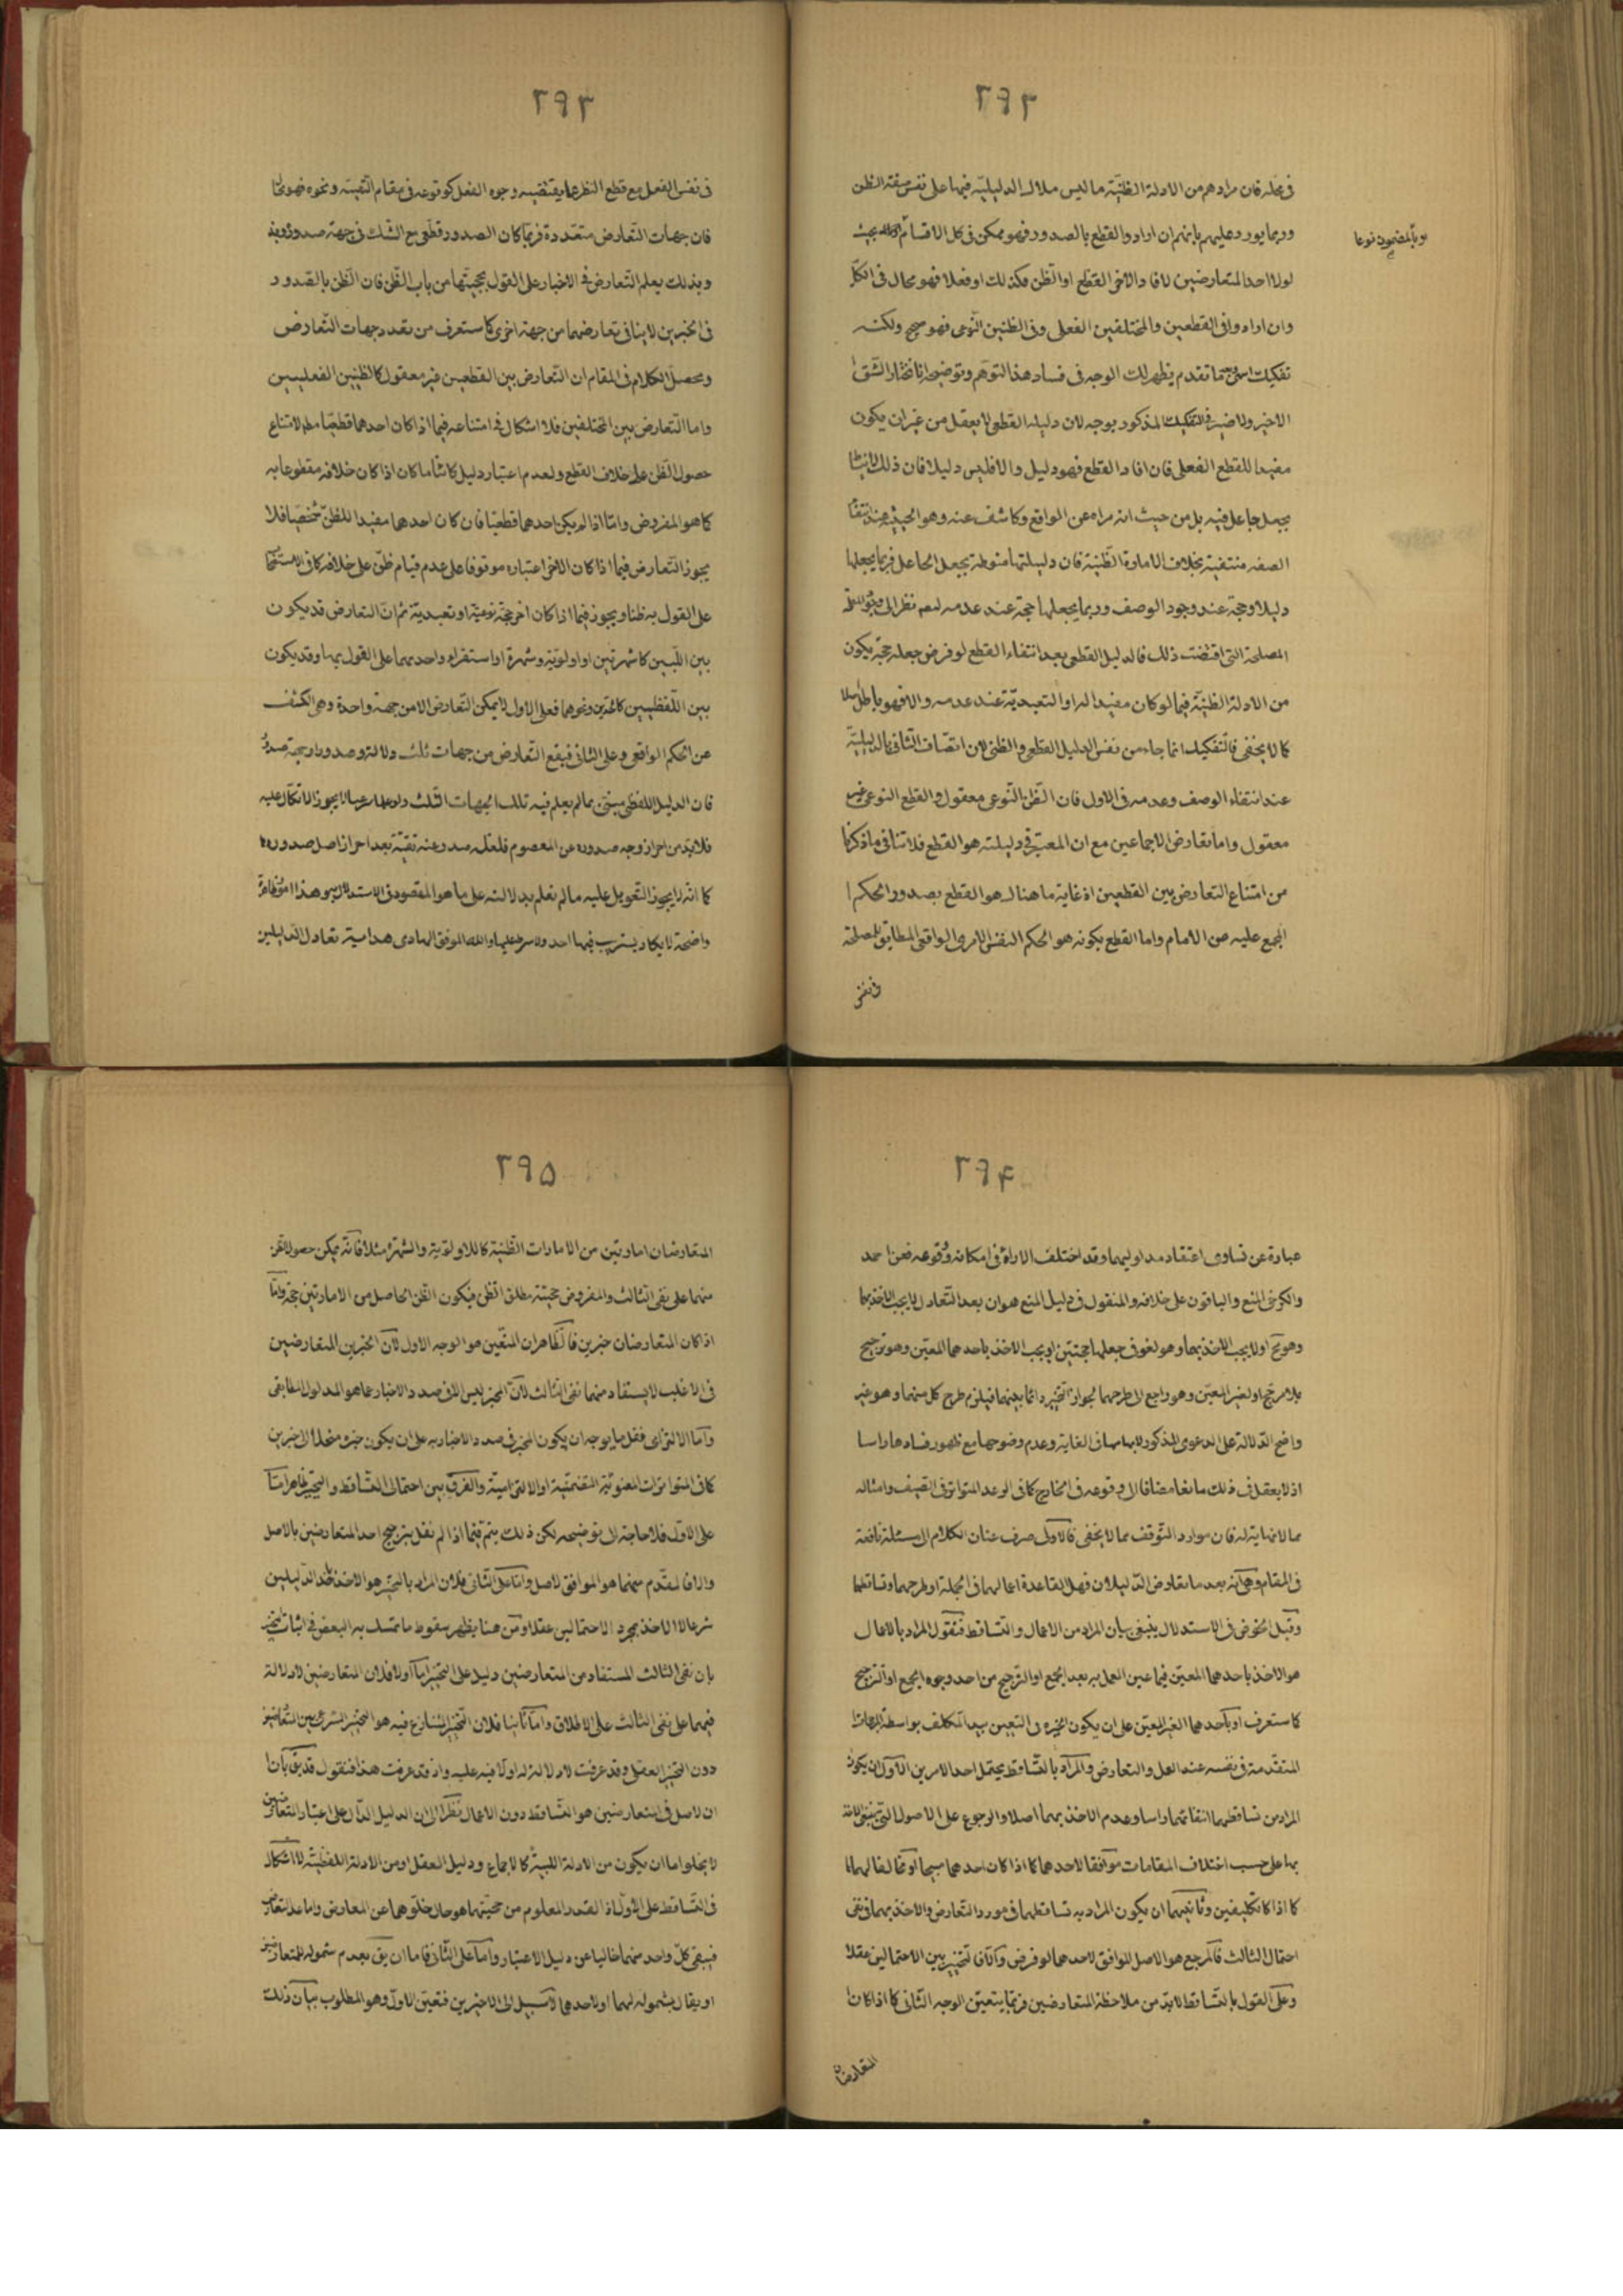 ٢٩٢
فى محله فان مرادهم من الادلة الظنيّة ما ليس ملاك الدليليّة فيها على نفس صفة الظن
وربما يورد عليهم بانهم ان ارادوا القطع بالصدور فهو ممكن فى كل الاقسام بحيث
او بالمضمون نوعا
لولا احد المتعارضين لافاد الاخر القطع او الظن فكذلك او فعلا فهو محال فى الكل
وان ارادوا فى القطعين والمختلفين الفعلى وفى الظنين النوعى فهو صحيح ولكنه
تفكيك مما تقدم يظهر لك الوجه فى فساد هذا التوهم وتوضيحه انا نختار الشق
الاخير ولا ضير فى التفكيك المذكور بوجه لان دليله القطعى لا يعقل من غير ان يكون
مفيدا للقطع الفعلى فان افاد القطع فهو دليل والا فليس دليلا فان ذلك ليس
بجعل جاعل فيه بل من حيث انه مراة عن الواقع وكاشف عنه وهو الحيث عند انتفاء
الصفة منتفية بخلاف الامارة الظنية فان دليليتها منوطة بجعل الجاعل فربما يجعلها
دليلا وحجة عند وجود الوصف وربما يجعلها حجة عند عدمه لعدم نظر الى
المصلحة التى اقتضت ذلك فالدليل القطعى بعد انتفاء القطع لو فرض جعله حجة يكون
من الادلة الظنيّة فيما لو كان مفيدا له او التعبديّة عند عدمه والا فهو باطل
كما لا يخفى فالتفكيك انما جاء من نفس الدليل القطعى والظنى لان اتصاف الثانى بالدليليّة
عند انتفاء الوصف وعدمه فى الاول فان الظن النوعى معقول والقطع النوعى غير
معقول واما تعارض الاجماعين مع ان المعتبر فى دليليته هو القطع فلا تنافى ما ذكرنا
من امتناع التعارض بين القطعين اذ غاية ما هناك هو القطع بصدور الحكم
المجمع عليه من الامام واما القطع بكونه هو الحكم النفس الامرى الواقعى المطابق للمصلحة
فى نفس
٢٩٣
فى نفس الفعل مع قطع النظر عما يقتضيه وجوه الفعل كوقوعه فى مقام التقية ونحوه فهو
فان جهات التعارض متعددة فربما كان الصدور قطعى مع الشك فى جهة صدوره
وبذلك يعلم التعارض فى الاخبار على القول بحجيتها من باب الظن فان الظن بالصدور
فى الخبرين لا ينافى تعارضهما من جهة اخرى كما ستعرف من تعدد جهات التعارض
ومحصل الكلام فى المقام ان التعارض بين القطعيين غير معقول كالظنيين الفعليين
واما التعارض بين المختلفين فلا اشكال فى امتناعه فيما اذا كان احدهما قطعيا لامتناع
حصول الظن على خلاف القطع ولعدم اعتبار دليل كائنا ما كان اذا كان خلافه مقطوعا به
كما هو المفروض واما اذا لم يكن احدهما قطعيا فان كان احدهما مفيدا للظن شخصيا فلا
يجوز التعارض فيما اذا كان الاخر اعتباره موقوفا على عدم قيام ظن على خلافه كما فى الاستصحاب
على القول به ظنا ويجوز فيما اذا كان اخر حجة نوعية او تعبدية ثم ان التعارض قد يكون
بين اللبيين كالشهرتين او اولوية وشهرة او استقراء واحدهما على القول بها وقد يكون
بين اللفظيين كالخبرين ونحوهما فعلى الاول لا يمكن التعارض الا من جهة واحدة وهى الكشف
عن الحكم الواقعى وعلى الثانى فيقع التعارض من جهات ثلث دلالة وصدورا وجهة صدور
فان الدليل اللفظى مبتنى بما لم يعلم فيه تلك الجهات الثلث لا يجوز الاتكال عليه
فلابد من احراز وجه صدوره عن المعصوم فلعله صدر عنه تقية بعد احراز اصل صدوره
كما انه لا يجوز التعويل عليه ما لم نعلم بدلالته على ما هو المقصود فى الاستدلال به وهذا امور ظاهرة
واضحة لا يكاد يستريب فيها احد والله الموفق الهادى هداية تعادل الدليلين
٢٩۴
عبارة عن تساوى اعتقاد مدلوليهما وقد اختلف الاراء فى امكانه ووقوعه فعن احمد
والكرخى المنع والباقون على خلافه والمنقول فى دليل المنع هو ان بعد التعادل لا يجب الاخذ بهما
وهو مح او لا يجب الاخذ بهما وهو لغو فى جعلها حجتين او يجب الاخذ باحدهما المعين وهو ترجيح
بلا مرجح او لغير المعين وهو راجع الى طرحهما لجواز التخيير دائما بينهما فيلزم طرح كل منهما وهو غير
واضح الدلالة على الدعوى المذكور لابهامها فى الغاية وعدم وضوحها مع ظهور فسادها راسا
اذ لا يعقل فى ذلك مانعا مضافا الى وقوعه فى الخارج كما فى الوعد المتواتر فى الصيف وامثاله
مما لا نهاية له فان موارد التوقف مما لا يخفى فالاولى صرف عنان الكلام الى مسئلة نافعة
فى المقام وهى انه بعد ما تعارض الدليلان فهل القاعدة اعمالهما فى الجملة او طرحهما وتساقطهما
وقبل الخوض فى الاستدلال ينبغى بيان المراد من الاعمال والتساقط فنقول المراد بالاعمال
هو الاخذ باحدهما المعين فيما عين العمل به بعد الجمع او الترجيح من احد وجوه الجمع او الترجيح
كما ستعرف او باحدهما الغير المعين على ان يكون الخيرة فى التعيين بيد المكلف بواسطة
المتقدمة فى نفسه عند العمل والتعارض والمراد بالتساقط يحتمل احد الامرين الاول ان يكون
المراد من تساقطهما انتفائهما راسا وعدم الاخذ بهما اصلا والرجوع على الاصول التى ينبغى الاخذ
بها على حسب اختلاف المقامات موافقا لاحدهما كما اذا كان احدهما مبيحا او مخالفا لهما
كما اذا كانا تكليفين وثانيهما ان يكون المراد به تساقطهما فى مورد التعارض والاخذ بهما فى نفى
احتمال الثالث فالمرجع هو الاصل الموافق لاحدهما لو فرض والا فالتخيير بين الاحتمالين عقلا
وعلى القول بالتساقط لابد من ملاحظة المتعارضين فربما يتعين الوجه الثانى كما اذا كان
المتعارضان
٢٩۵
المتعارضان امارتين من الامارات الظنية كالاولوية والشهرة مثلا فانه يمكن حصول الظن
منهما على نفى الثالث والمفروض حجيته مطلق الظن فيكون الظن الحاصل من الامارتين حجة واما
اذا كان المتعارضان خبرين فالظاهر ان المتعين هو الوجه الاول لان الخبرين المتعارضين
فى الاغلب لا يستفاد منهما نفى الثالث لان المخبر ليس الا فى صدد الاخبار عما هو المدلول المطابقى
واما الالتزامى فقل ما يوجد ان يكون المخبر فى صدد الاخبار به على ان يكون خبره منحلا الى خبرين
كما فى المتواترات المعنوية التضمنية او الالتزامية والفرق بين احتمالى التساقط والتخيير ظاهر اما
على الاول فلا حاجة الى توضيحه لكن ذلك يتم فيما اذا لم نقل بترجيح احد المتعارضين بالاصل
والا فالمقدم منهما هو الموافق للاصل واما على الثانى فلان المراد بالتخيير هو الاخذ باحد الدليلين
شرعا لا الاخذ بمجرد الاحتمالين عقلا ومن هنا يظهر سقوط ما تمسك به البعض فى اثبات التخيير
بان نفى الثالث المستفاد من المتعارضين دليل على التخيير اما اولا فلان المتعارضين لا دلالة
فيهما على نفى الثالث على الاطلاق واما ثانيا فلان التخيير المتنازع فيه هو التخيير الشرعى بين المتعارضين
دون التخيير العقلى وقد عرفت لا دلالة له اولا فيه عليه واذ قد عرفت هذا فنقول قد يق بان
ان الاصل فى المتعارضين هو التساقط دون الاعمال نظرا الى ان الدليل الدال على اعتبار المتعارضين
لا يخلو اما ان يكون من الادلة اللبية كالاجماع ودليل العقل او من الادلة اللفظية لا اشكال
فى التساقط على الاول اذ القدر المعلوم من حجيتهما هو حال خلوهما عن المعارض واما عند التعارض
فيبقى كل واحد منهما خاليا عن دليل الاعتبار واما على الثانى فاما ان يق بعدم شموله للمتعارضين
او يقال بشموله لهما او لاحدهما لا سبيل الى الاخيرين فتعين الاول وهو المطلوب بيان ذلك